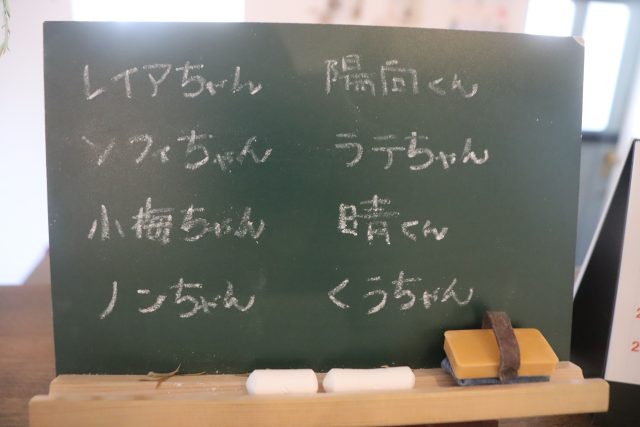 レイアちゃん 陽向くん
ソフィちゃん ラテちゃん
小梅ちゃん 晴くん
ノンちゃん くうちゃん